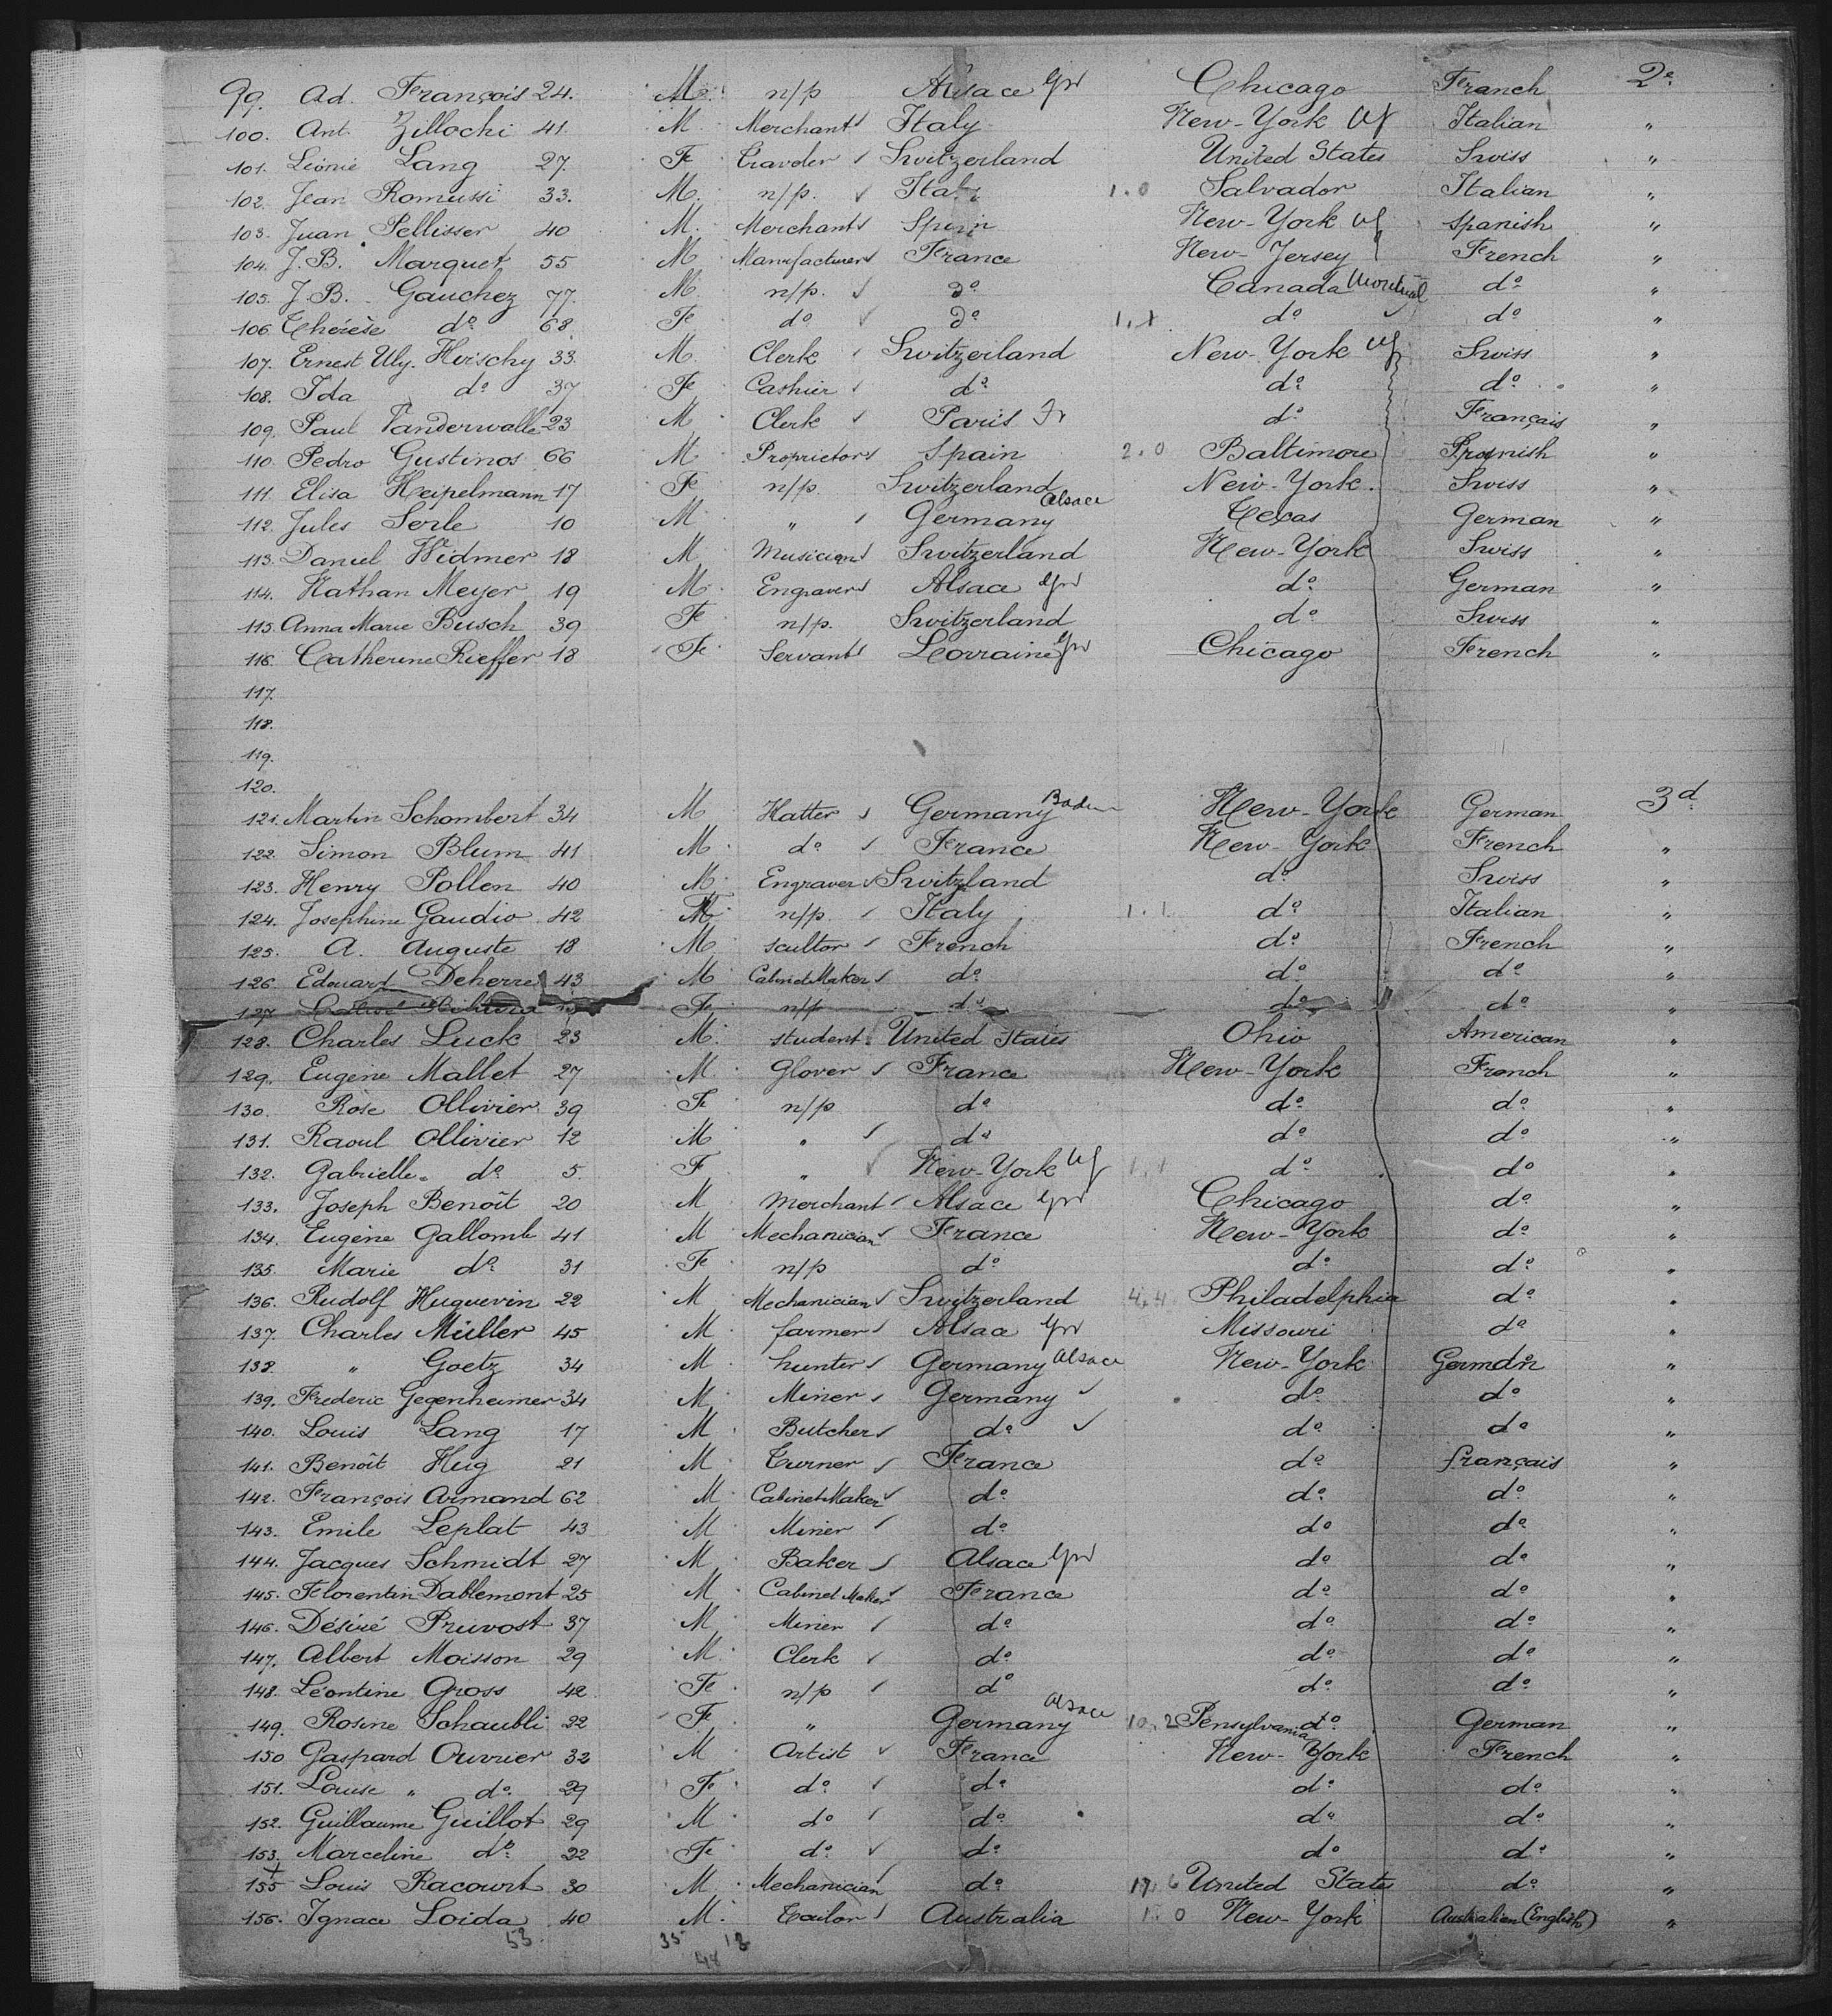 99. Ad. François 24. M. n/p Alsace Ger Chicago French 2e
100. Ant. Zillochi 41. M. Merchant Italy New-York Italian "
101. Léonie Lang 27. Fe Traveler Switzerland United States Swiss "
102. Jean Romussi 33. M. n/p. Italy 1.0 Salvador Italian "
103. Juan Pellisser 40 M. Merchant Spain New-York Spanish "
104. J.B. Marquet 55 M Manufacturer France New-Jersey French "
105. J.B. Gauchez 77. M n/p. do Canada Montreal do "
106. Thérèse do 68. Fe do do 1.1 do do "
107. Ernest Uly. Hirschy 33. M. Clerk Switzerland New-York Swiss "
108. Ida do 37 Fe Cashier do do do "
109. Paul Vanderwalle 23 M Clerk Paris Fr do Français "
110. Pedro Gustinos 66 M Proprietor Spain 2.0 Baltimore Spanish "
111. Elisa Heipelmann 17 Fe n/p. Switzerland New-York. Swiss "
112. Jules Serle 10 M " Germany Alsace Texas German "
113. Daniel Widmer 18 M Musician Switzerland New-York Swiss "
114. Nathan Meyer 19 M. Engraver Alsace Ger do German "
115. Anna Marie Busch 39 Fe n/p. Switzerland do Swiss "
116. Catherine Rieffer 18 Fe Servant Lorraine Ger Chicago French "
117.
118.
119.
120.
121. Martin Schombert 34 M Hatter Germany Baden New-York German 3d
122. Simon Blum 41 M do France New-York French "
123. Henry Pollen 40 M. Engraver Switzland do Swiss "
124. Josephine Gaudio 42 n/p. Italy 1.1 do Italian "
125. A. Auguste 18 M scultor French do French "
126. Edouard Deherre 43 M Cabinet Maker do do do "
127. Fe n/p do do do "
128. Charles Luck 23 M. student United States Ohio American "
129. Eugène Mallet 27 M. Glover France New-York French "
130. Rose Ollivier 39 Fe n/p do do do "
131. Raoul Ollivier 12 M " do do do "
132. Gabrielle do 5. F " New-York 1.1 do do "
133. Joseph Benoît 20 M Merchant Alsace Ger Chicago do "
134. Eugène Gallomb 41 M Mechanician France New-York do "
135. Marie do 31 Fe n/p do do do "
136. Rudolf Huguevin 22 M Mechanician Switzerland 4.4 Philadelphia do "
137. Charles Müller 45 M farmer Alsace Ger Missouri do "
138. " Goetz 34 M hunter Germany Alsace New-York German "
139. Frederic Gegenheimer 34 M Miner Germany do do "
140. Louis Lang 17 M Butcher do do do "
141. Benoît Hug 21 M Turner France do français "
142. François Armand 62 M Cabinet Maker do do do "
143. Emile Leplat 43 M Miner do do do "
144. Jacques Schmidt 27 M Baker Alsace Ger do do "
145. Florentin Dablemont 25 M Cabinet Maker France do do "
146. Désiré Pruvost 37 M Miner do do do "
147. Albert Moisson 29 M Clerk do do do "
148. Léontine Gross 42 Fe n/p do do do "
149. Rosine Schaubli 22 Fe " Germany Alsace 10.2 Pensylvania do German "
150 Gaspard Ouvrier 32 M Artist France New-York French "
151. Louise " do. 29 Fe do do do do "
152. Guillaume Guillot 29 M do do do do "
153. Marceline do 22 Fe do do do do "
155 Louis Racourt 30 M. Mechanician do 17.6 United States do "
156. Ignace Loida 40 M. Tailor Australia 1.0 New-York Australian (English) "
53 35 18
48